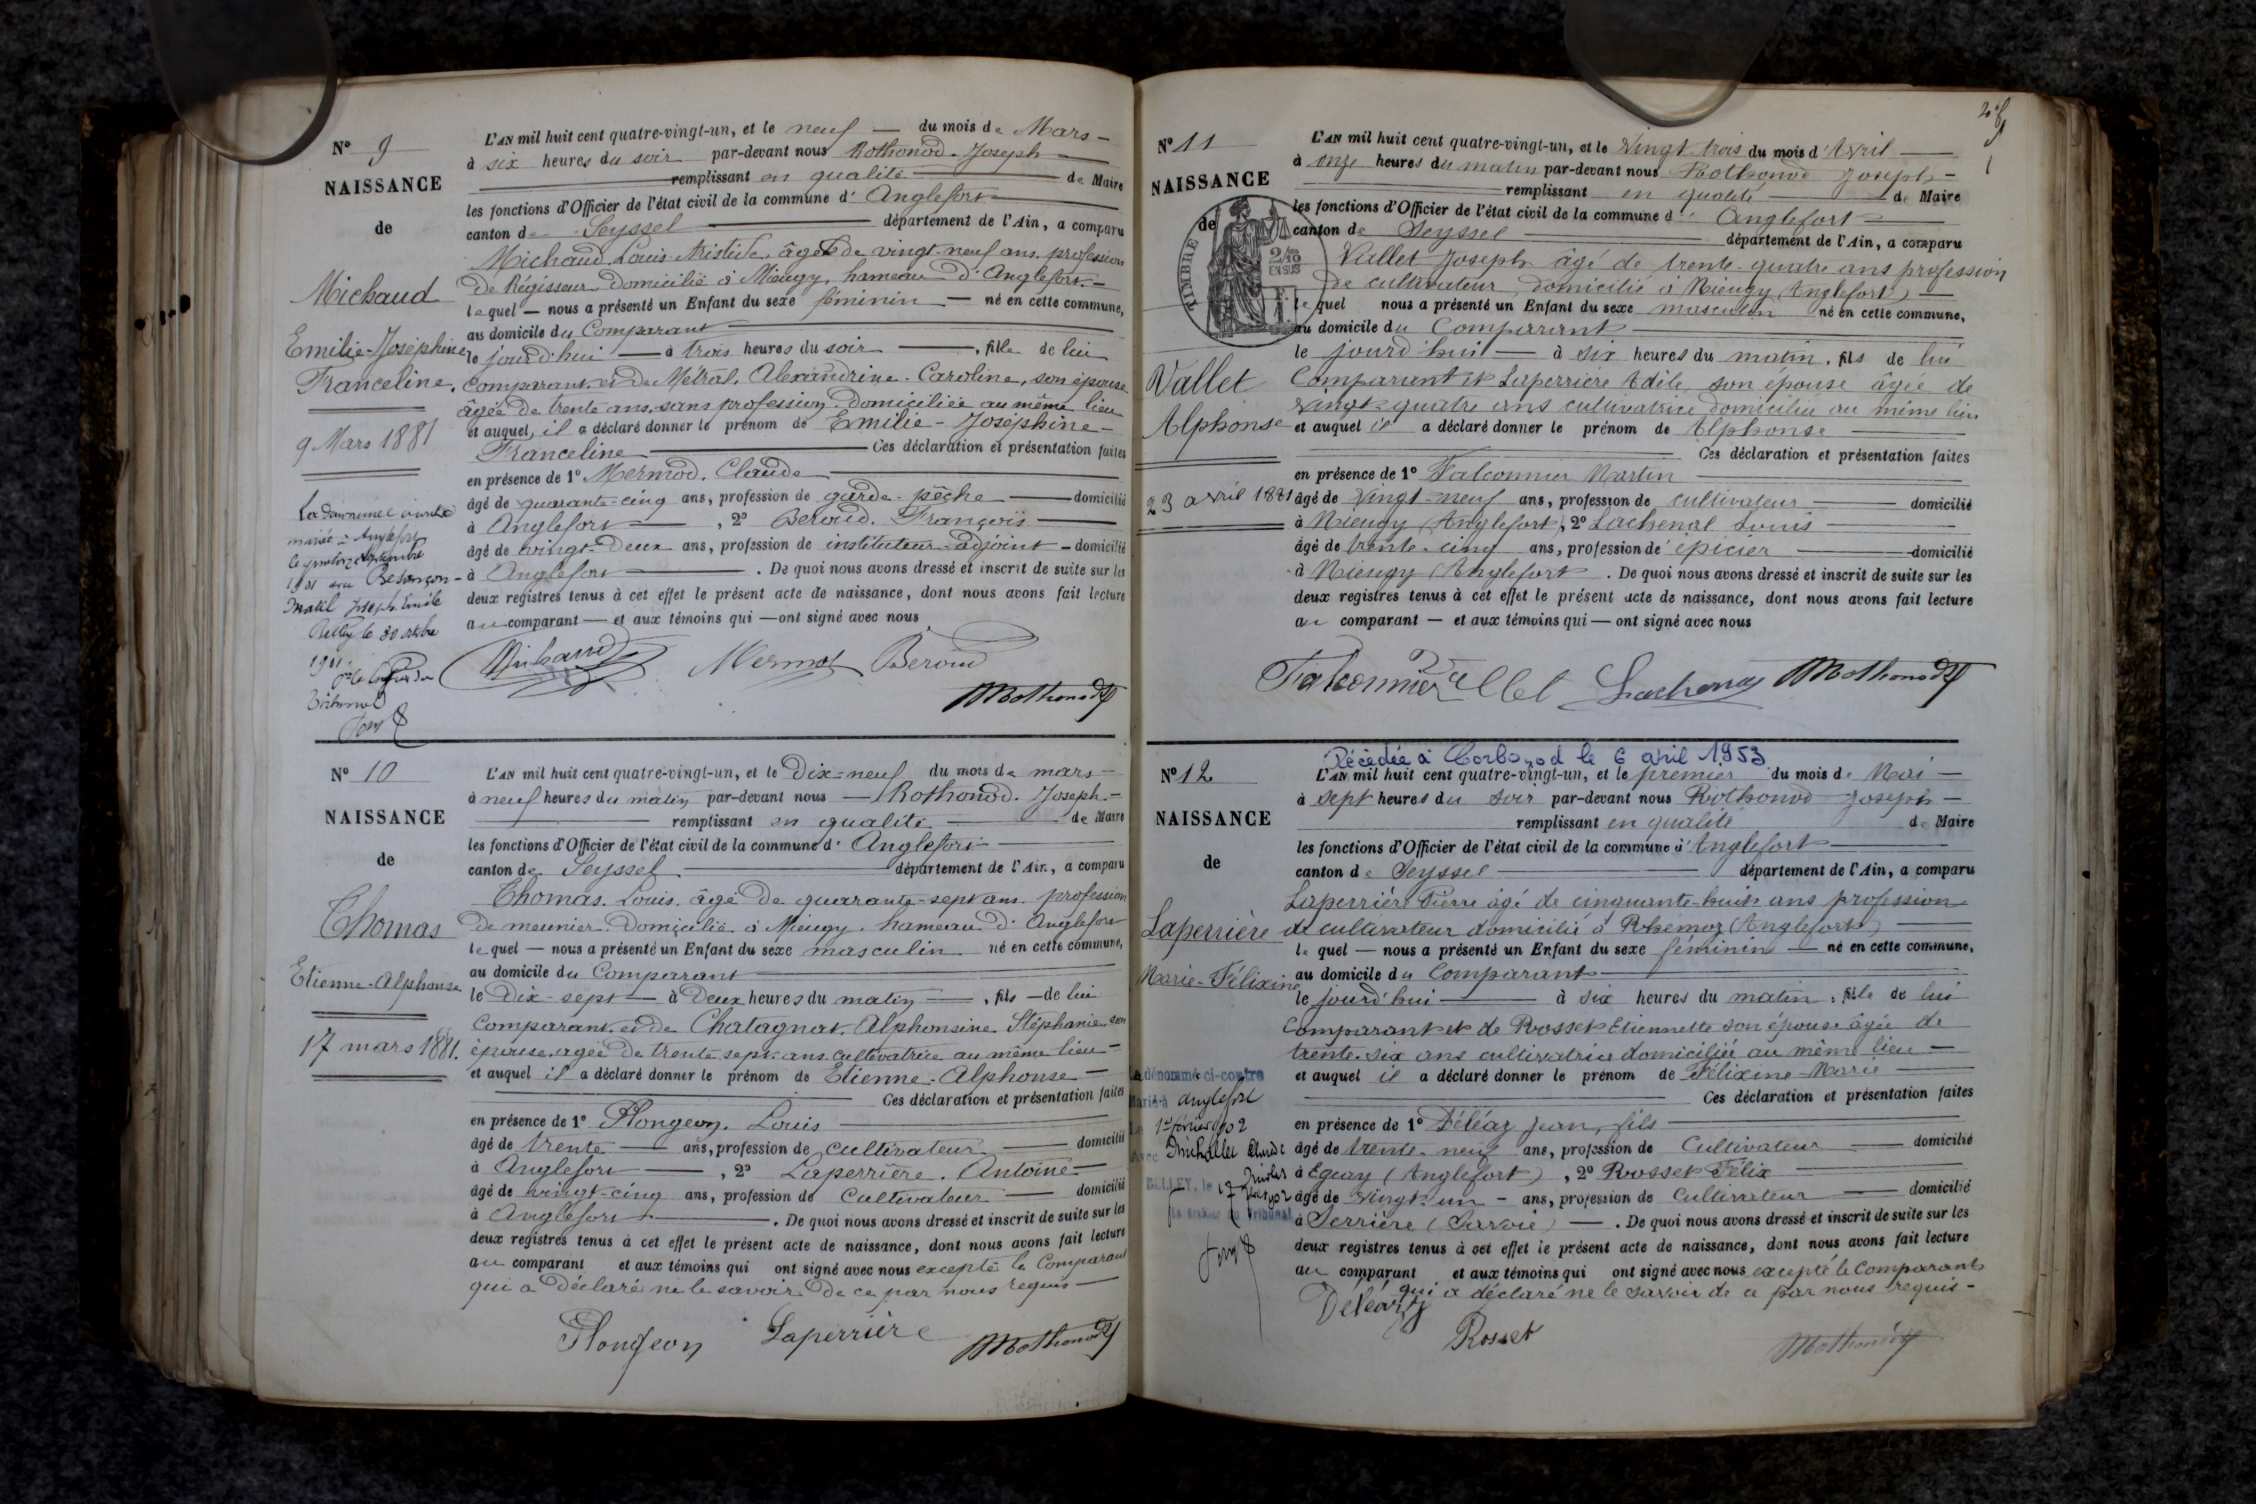 N° 9
NAISSANCE
de
Michaud
Emilie-Joséphine
Franceline.
9 Mars 1881
La dénommée ci-contre
mariée à Anglefort
le quatorze septembre
1901 avec Besançon-
Matil Joseph Emile
Belley le 30 octobre
1901.
L'AN mil huit cent quatre-vingt-un, et le neuf du mois de Mars
à six heures du soir par-devant nous Rothonod. Joseph
remplissant en qualité de Maire
les fonctions d'Officier de l'état civil de la commune d' Anglefort
canton de Seyssel département de l'Ain, a comparu
Michaud. Louis-Aristide, âgé de vingt-neuf ans, profession
de Régisseur domicilié à Mieugy, hameau d'Anglefort.
lequel nous a présenté un Enfant du sexe féminin né en cette commune,
au domicile du Comparant
le jourd'hui à trois heures du soir, fille de lui
comparant et de Métral. Alexandrine-Caroline, son épouse
âgée de trente ans, sans profession domiciliée au même lieu
et auquel, il a déclaré donner le prénom de Emilie-Joséphine-
Franceline Ces déclaration et présentation faites
en présence de 1° Mermod. Claude
âgé de quarante-cinq ans, profession de garde-pêche domicilié
à Anglefort, 2° Beroud. François
âgé de vingt-deux ans, profession de instituteur-adjoint domicilié
à Anglefort. De quoi nous avons dressé et inscrit de suite sur les
deux registres tenus à cet effet le présent acte de naissance, dont nous avons fait lecture
au comparant et aux témoins qui ont signé avec nous
Michaud Mermod Beroud
Rothonod
N° 10
NAISSANCE
de
Thomas
Etienne-Alphonse
17 mars 1881.
L'AN mil huit cent quatre-vingt-un, et le Dix-neuf du mois de mars
à neuf heures du matin par-devant nous Rothonod. Joseph.
remplissant en qualité de Maire
les fonctions d'Officier de l'état civil de la commune d' Anglefort
canton de Seyssel département de l'Ain, a comparu
Thomas. Louis. âgé de quarante-sept ans profession
de meunier domicilié à Mieugy, hameau d'Anglefort
lequel nous a présenté un Enfant du sexe masculin né en cette commune,
au domicile du Comparant
le Dix-sept à Deux heures du matin, fils de lui
comparant et de Chatagnat. Alphonsine. Stéphanie son
épouse, agée de trente sept ans cultivatrice au même lieu
et auquel il a déclaré donner le prénom de Etienne-Alphonse
Ces déclaration et présentation faites
en présence de 1° Plongeon. Louis
âgé de trente ans, profession de cultivateur domicilié
à Anglefort, 2° Laperrière. Antoine
âgé de vingt-cinq ans, profession de Cultivateur domicilié
à Anglefort. De quoi nous avons dressé et inscrit de suite sur les
deux registres tenus à cet effet le présent acte de naissance, dont nous avons fait lecture
au comparant et aux témoins qui ont signé avec nous excepté le Comparant
qui a déclaré ne le savoir de ce par nous requis
Plongeon Laperrière Rothonod
N° 11
NAISSANCE
de
TIMBRE
2/10
EN SUS
Vallet
Alphonse
23 avril 1881
L'AN mil huit cent quatre-vingt-un, et le Vingt trois du mois d'Avril
à onze heures du matin par-devant nous Rothonod Joseph
remplissant en qualité de Maire
les fonctions d'Officier de l'état civil de la commune d' Anglefort
canton de Seyssel département de l'Ain, a comparu
Vallet Joseph âgé de trente-quatre ans profession
de cultivateur, domicilié à Mieugy (Anglefort)
lequel nous a présenté un Enfant du sexe masculin né en cette commune,
au domicile du Comparant
le jourd'hui à six heures du matin, fils de lui
comparant et Laperrière Adèle son épouse âgée de
vingt-quatre ans cultivatrice domiciliée au même lieu
et auquel il a déclaré donner le prénom de Alphonse
Ces déclaration et présentation faites
en présence de 1° Falconnier Martin
âgé de Vingt-neuf ans, profession de cultivateur domicilié
à Mieugy (Anglefort), 2° Lachenal Louis
âgé de trente-cinq ans, profession de épicier domicilié
à Mieugy (Anglefort. De quoi nous avons dressé et inscrit de suite sur les
deux registres tenus à cet effet le présent acte de naissance, dont nous avons fait lecture
au comparant et aux témoins qui ont signé avec nous
Falconnier Vallet Lachenal Rothonod
Décédée à Corbonod le 6 avril 1953
N° 12
NAISSANCE
de
Laperrière
Marie-Félixine
La dénommé ci-contre
Marié à Anglefort
Le 1er février 1902
Avec Michallet Claude
Nicolas
BELLEY, le 17
Le Greffier du Tribunal
L'AN mil huit cent quatre-vingt-un, et le premier du mois de Mai
à sept heures du soir par-devant nous Rothonod Joseph
remplissant en qualité de Maire
les fonctions d'Officier de l'état civil de la commune d'Anglefort
canton de Seyssel département de l'Ain, a comparu
Laperrière Pierre âgé de cinquante-huit ans profession
de cultivateur domicilié à Rhémoz (Anglefort)
lequel nous a présenté un Enfant du sexe féminin né en cette commune,
au domicile du Comparant
le jourd'hui à six heures du matin, fille de lui
Comparant et de Rosset Etiennette son épouse âgée de
trente-six ans cultivatrice domiciliée au même lieu
et auquel il a déclaré donner le prénom de Félixine-Marie
Ces déclaration et présentation faites
en présence de 1° Déléaz Jean, fils
âgé de trente-neuf ans, profession de Cultivateur domicilié
à Eguay (Anglefort), 2° Rosset Félix
âgé de Vingt-un ans, profession de Cultivateur domicilié
à Serrière (Savoie). De quoi nous avons dressé et inscrit de suite sur les
deux registres tenus à cet effet le présent acte de naissance, dont nous avons fait lecture
au comparant et aux témoins qui ont signé avec nous excepté le Comparant
qui a déclaré ne le savoir de ce par nous requis
Déléaz Rosset Rothonod